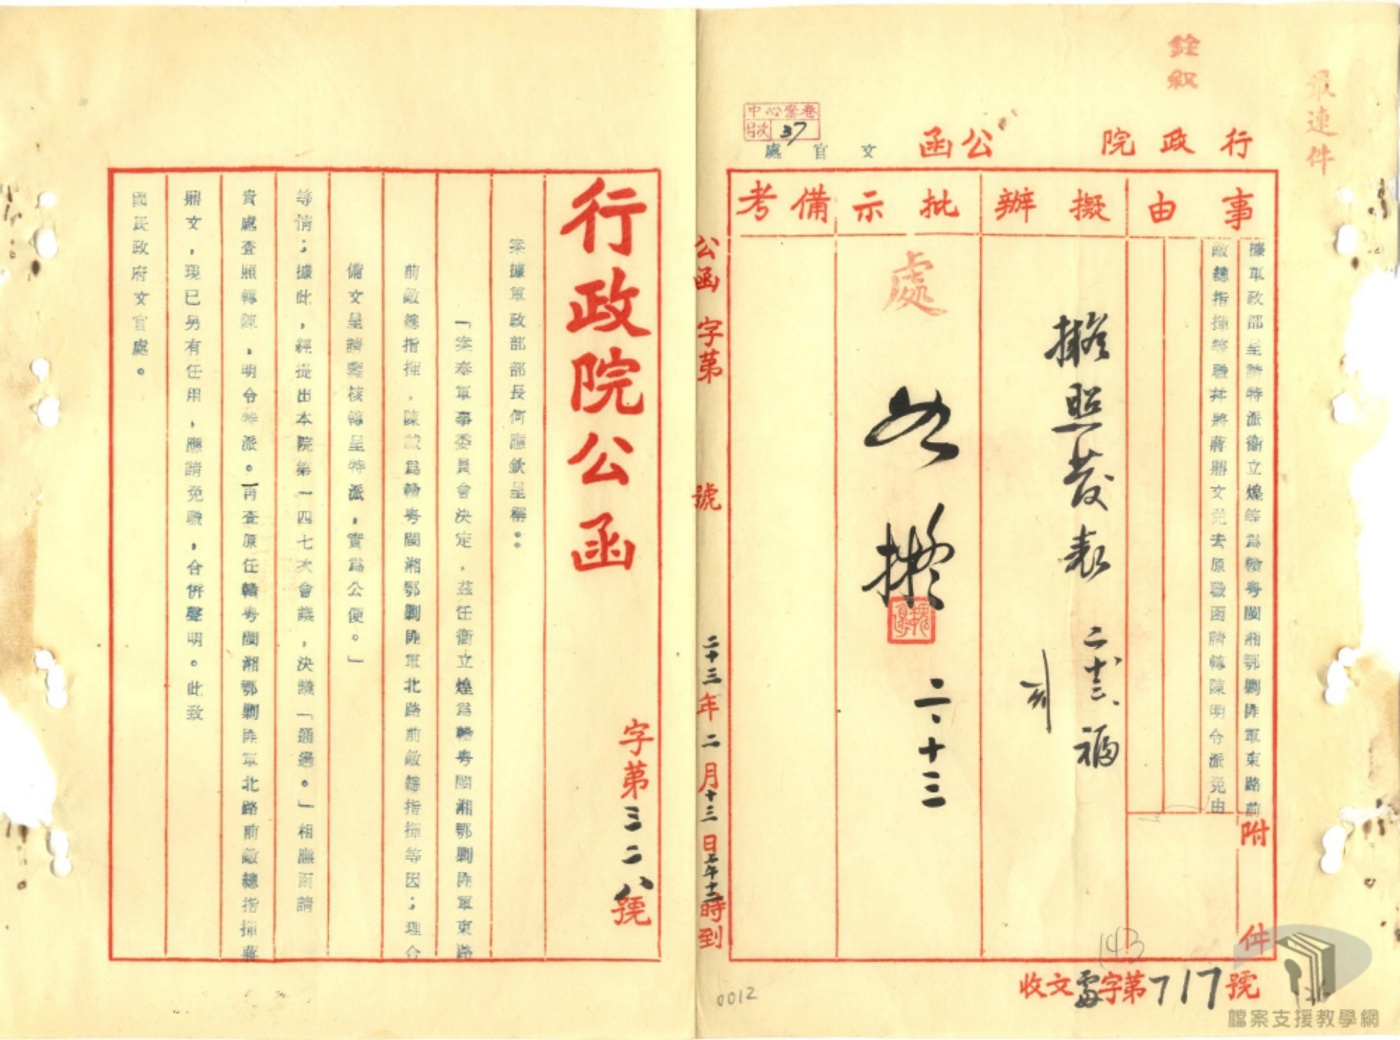 最速件
銓敘
行政院公函
文官處
中心案卷
目次 37
事由
擬辦
批示
備考
據軍政部呈請特派衞立煌等為贛粵閩湘鄂剿匪軍東路前
敵總指揮等職并將蔣鼎文免去原職函請轉陳明令派免由
附件
擬照發表
二十三
福
處
如擬
二、十三
收文 字第717號
143
0012
公函 字第 號
二十三年二月十三日上午十二時到
行政院公函
字第三二八號
案據軍政部部長何應欽呈稱：
「案奉軍事委員會決定，茲任衞立煌為贛粵閩湘鄂剿匪軍東路
前敵總指揮，陳誠為贛粵閩湘鄂剿匪軍北路前敵總指揮等因；理合
備文呈請鑒核轉呈特派，實為公便。」
等情；據此，經提出本院第一四七次會議，決議「通過。」相應函請
貴處查照轉陳，明令特派。再查原任贛粵閩湘鄂剿匪軍北路前敵總指揮蔣
鼎文，現已另有任用，應請免職，合併聲明。此致
國民政府文官處。
檔案支援教學網